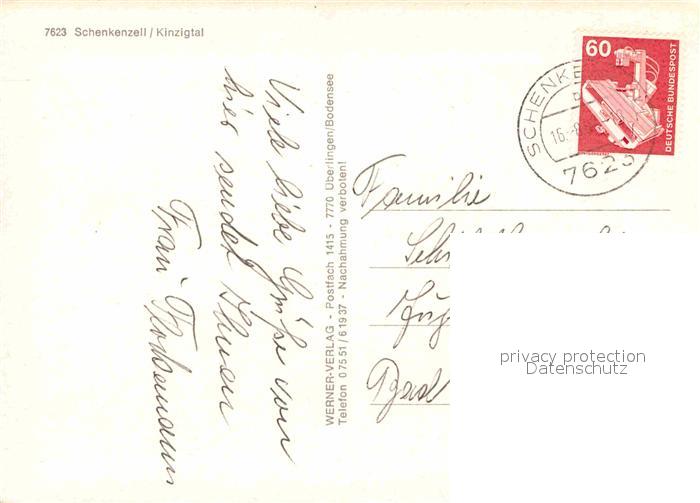 7623 Schenkenzell / Kinzigtal
60
DEUTSCHE BUNDESPOST
SCHENKE
16.-8
7623
Viele liebe Grüße von
hier sendet Ihnen
Frau
WERNER-VERLAG - Postfach 1415 - 7770 Überlingen/Bodensee
Telefon 07551/61937 - Nachahmung verboten!
Familie
Bad
privacy protection
Datenschutz